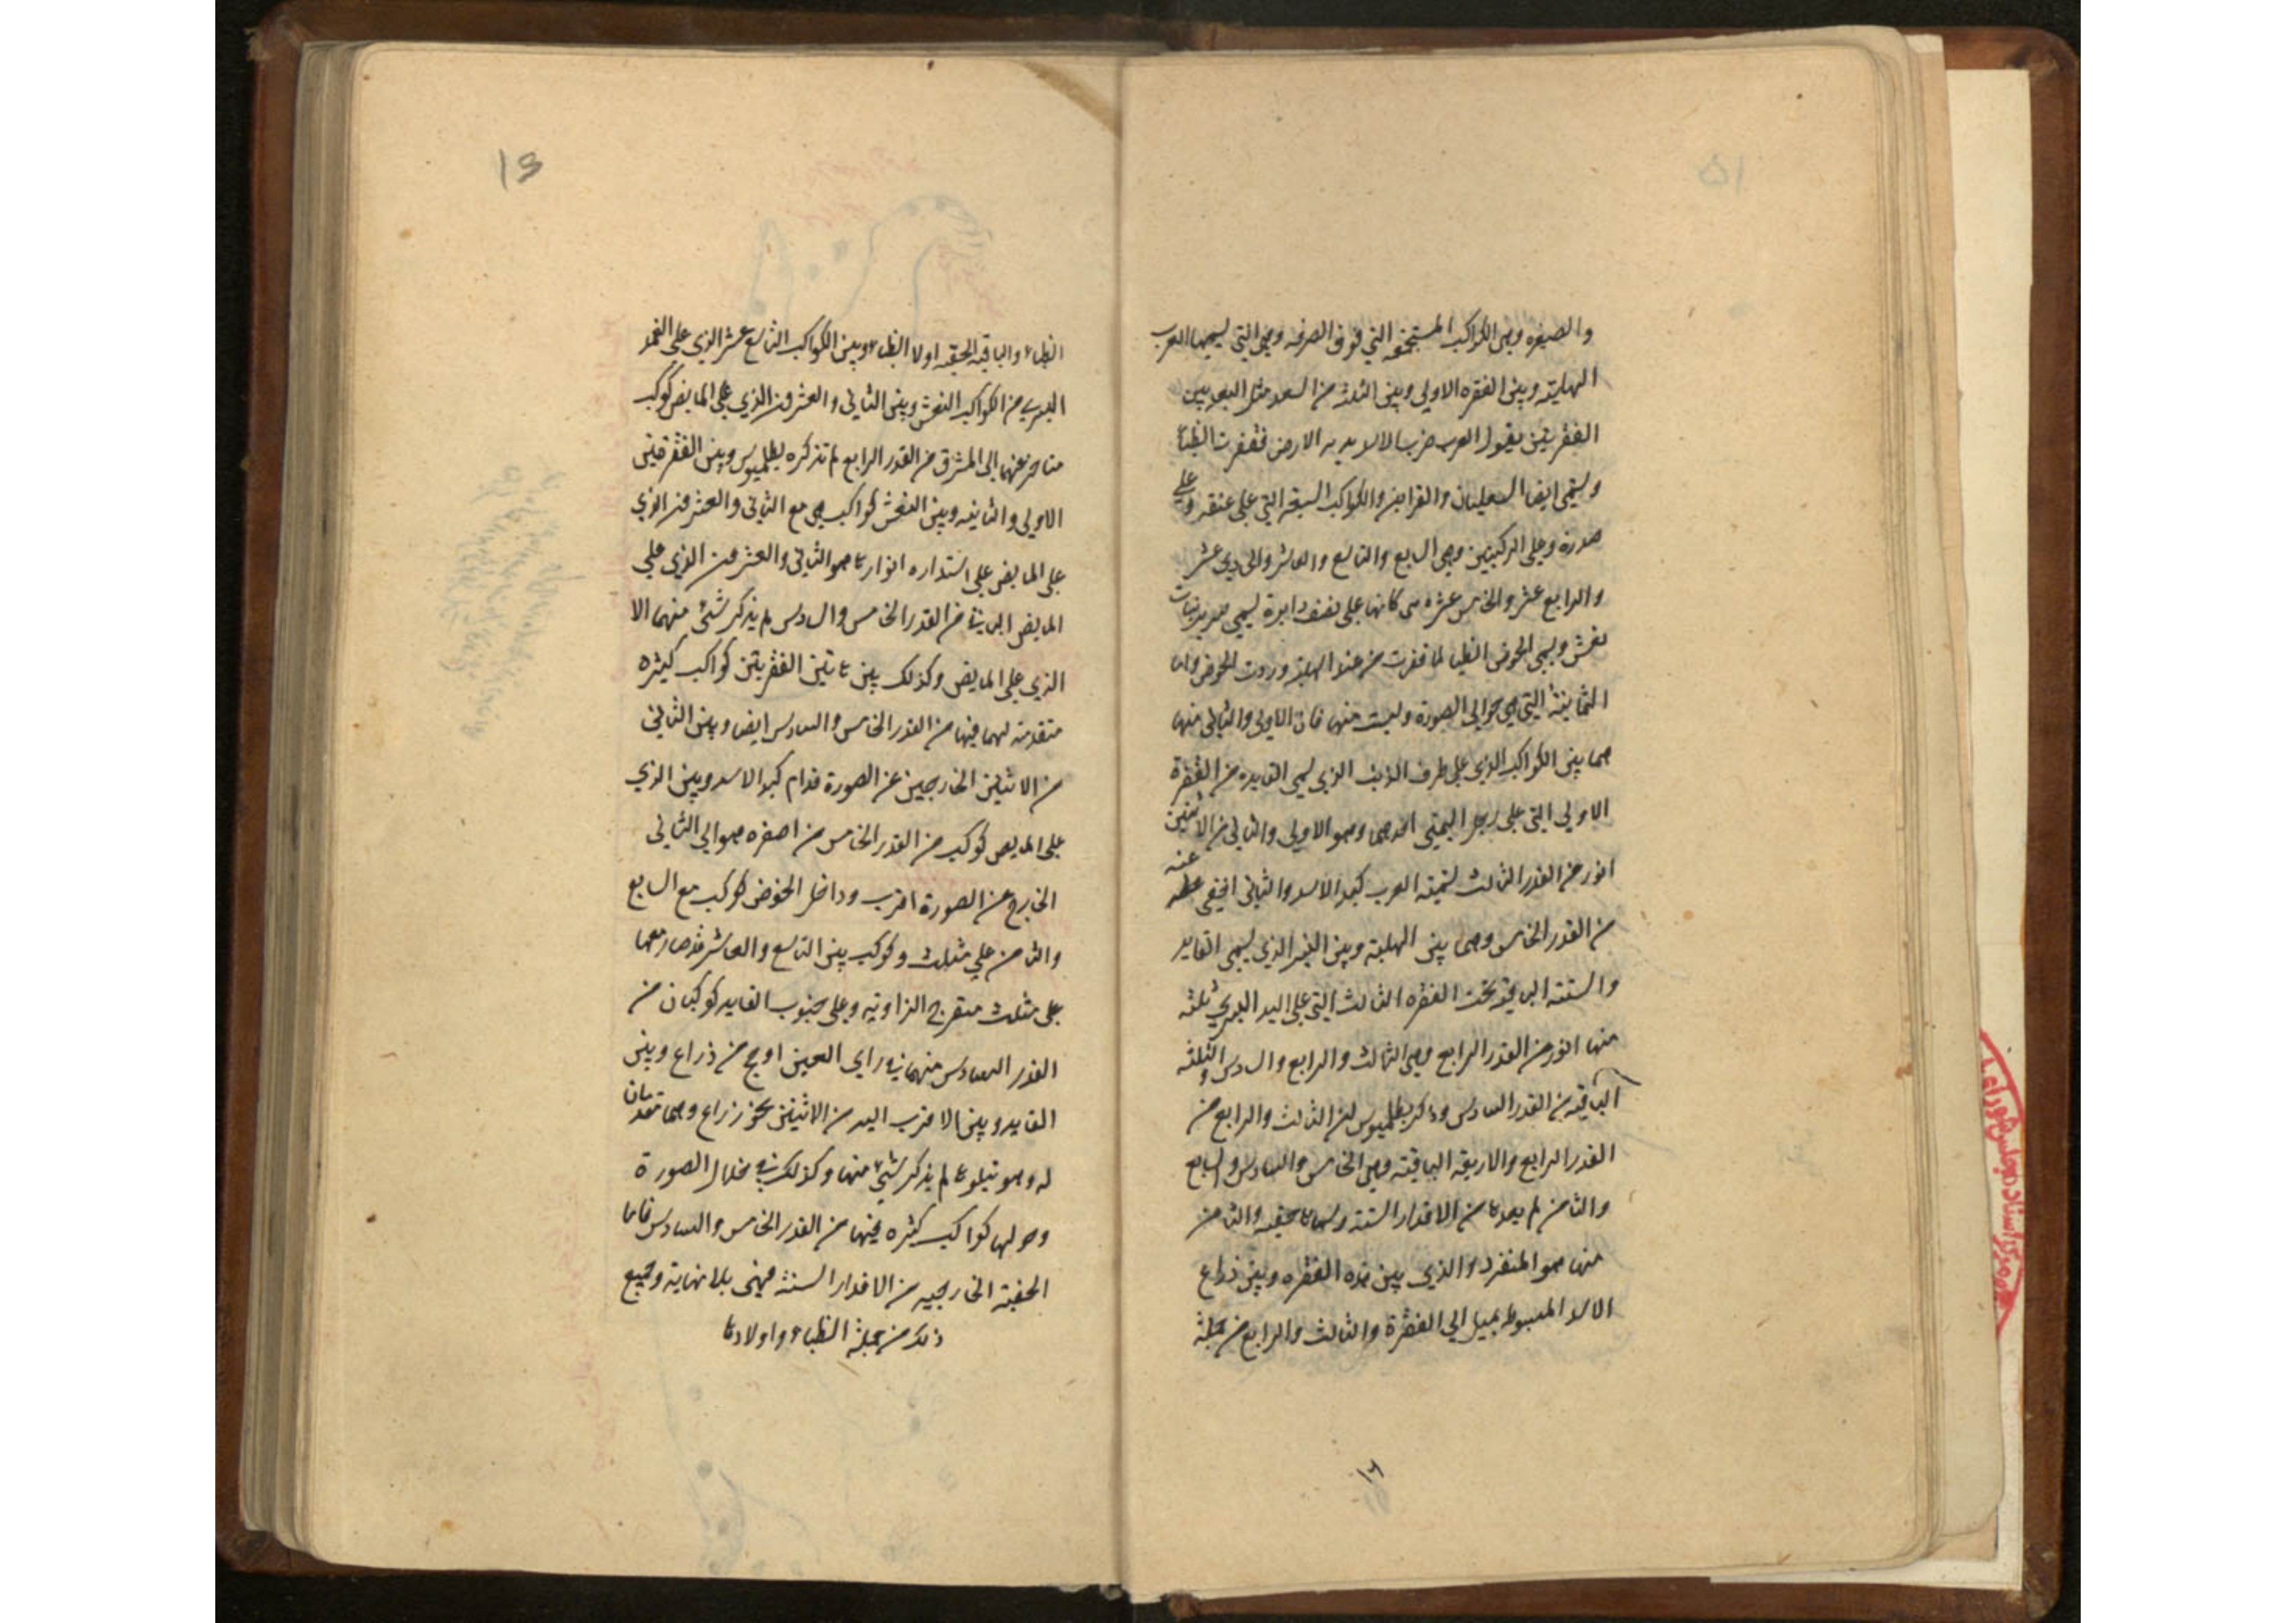 والصغيره وهي الكواكب المستجمعه التي فوق الصرفه وهي التي تسميها العرب
الهلبة وبين الفقره الاولى وبين الثلثة من البعد مثل البعد بين
الفقرتين يقول العرب ضرب الاسد بذنبه الارض فقفرت الظبا
وتسمي ايضا الثعيلبان والقراين والكواكب السبعة التي على عنقه وعلي
صدره وعلى الركبتين وهي السابع والتاسع والعاشر والحادي عشر
والرابع عشر والخامس عشر هي كانها على نصف دايرة تسمي سرير بنات
نعش ويسمي الحوض الظبا لما قفزت من عند الهلبة وردت الحوض واما
الثمانية التي هي حوالي الصورة وليست منها فان الاولى والثاني منها
هما بين الكواكب الذي على طرف الذنب الذي يسمى القايد وبين القفزة
الاولي التي على رجل اليمني احدهما وهو الاولى والثاني من الاثنين
انور من القدر الثالث تسميه العرب كبد الاسد والثاني اخفي عنه
من القدر الخامس وهما بين الهلبة وبين النير الذي يسمى القايد
والستة الباقية تحت القفزه الثالث التي على اليد اليسري ثلثة
منها انور من القدر الرابع وهي الثالث والرابع والسادس والثلثة
الباقية من القدر السادس وذكر بطلميوس ان الثالث والرابع من
القدر الرابع والاربعة الباقية وهي الخامس والسادس والسابع
والثامن لم يعدها من الاقدار الستة وسماها خفية والثامن
منها هو المنفرد والذي بين هذه القفزه وبين ذراع
الاسد المبسوطة يميل الي القفزة والثالث والرابع من جملة
١٥
الظباء والباقية الخفيه اولاد الظباء وبين الكواكب التاسع عشر الذي على الفخذ
اليسري من الكواكب النعش وبين الثاني والعشرون الذي على المابض كوكب
متاخر عنهما الى المشرق من القدر الرابع لم تذكره بطلميوس وبين القفزتين
الاولى والثانية وبين النعش كواكب هي مع الثاني والعشرون الذي
على المابض على استداره انوارها هو الثاني والعشرون الذي على
المابض الباقية من القدر الخامس والسادس لم يذكر شئ منهما الا
الذي على المابض وكذلك بين هاتين القفزتين كواكب كثيره
متقدمة لهما فيها من القدر الخامس والسادس ايضا وبين الثاني
من الاثنين الخارجين عن الصورة قدام كبد الاسد وبين الذي
على المابض كوكب من القدر الخامس من اصغره هو الي الثاني
الخارج عن الصورة اقرب وداخل الحوض كوكب مع السابع
والثامن علي مثلث وكوكب بين التاسع والعاشر قد صار معهما
على مثلث منفرج الزاوية وعلى جنوب القايد كوكبان من
القدر السادس منهما في راي العين ارجح من ذراع وبين
القايد وبين الاقرب اليه من الاثنين نحو ذراع وهما متقدمان
له وهو يتلوها لم يذكر شئ منها وكذلك في خلال الصورة
وحولها كواكب كثيره فيها من القدر الخامس والسادس فاما
الخفية الخارجية من الاقدار الستة فهي بلا نهاية وجميع
ذلك من جملة الظباء واولادها
١٦